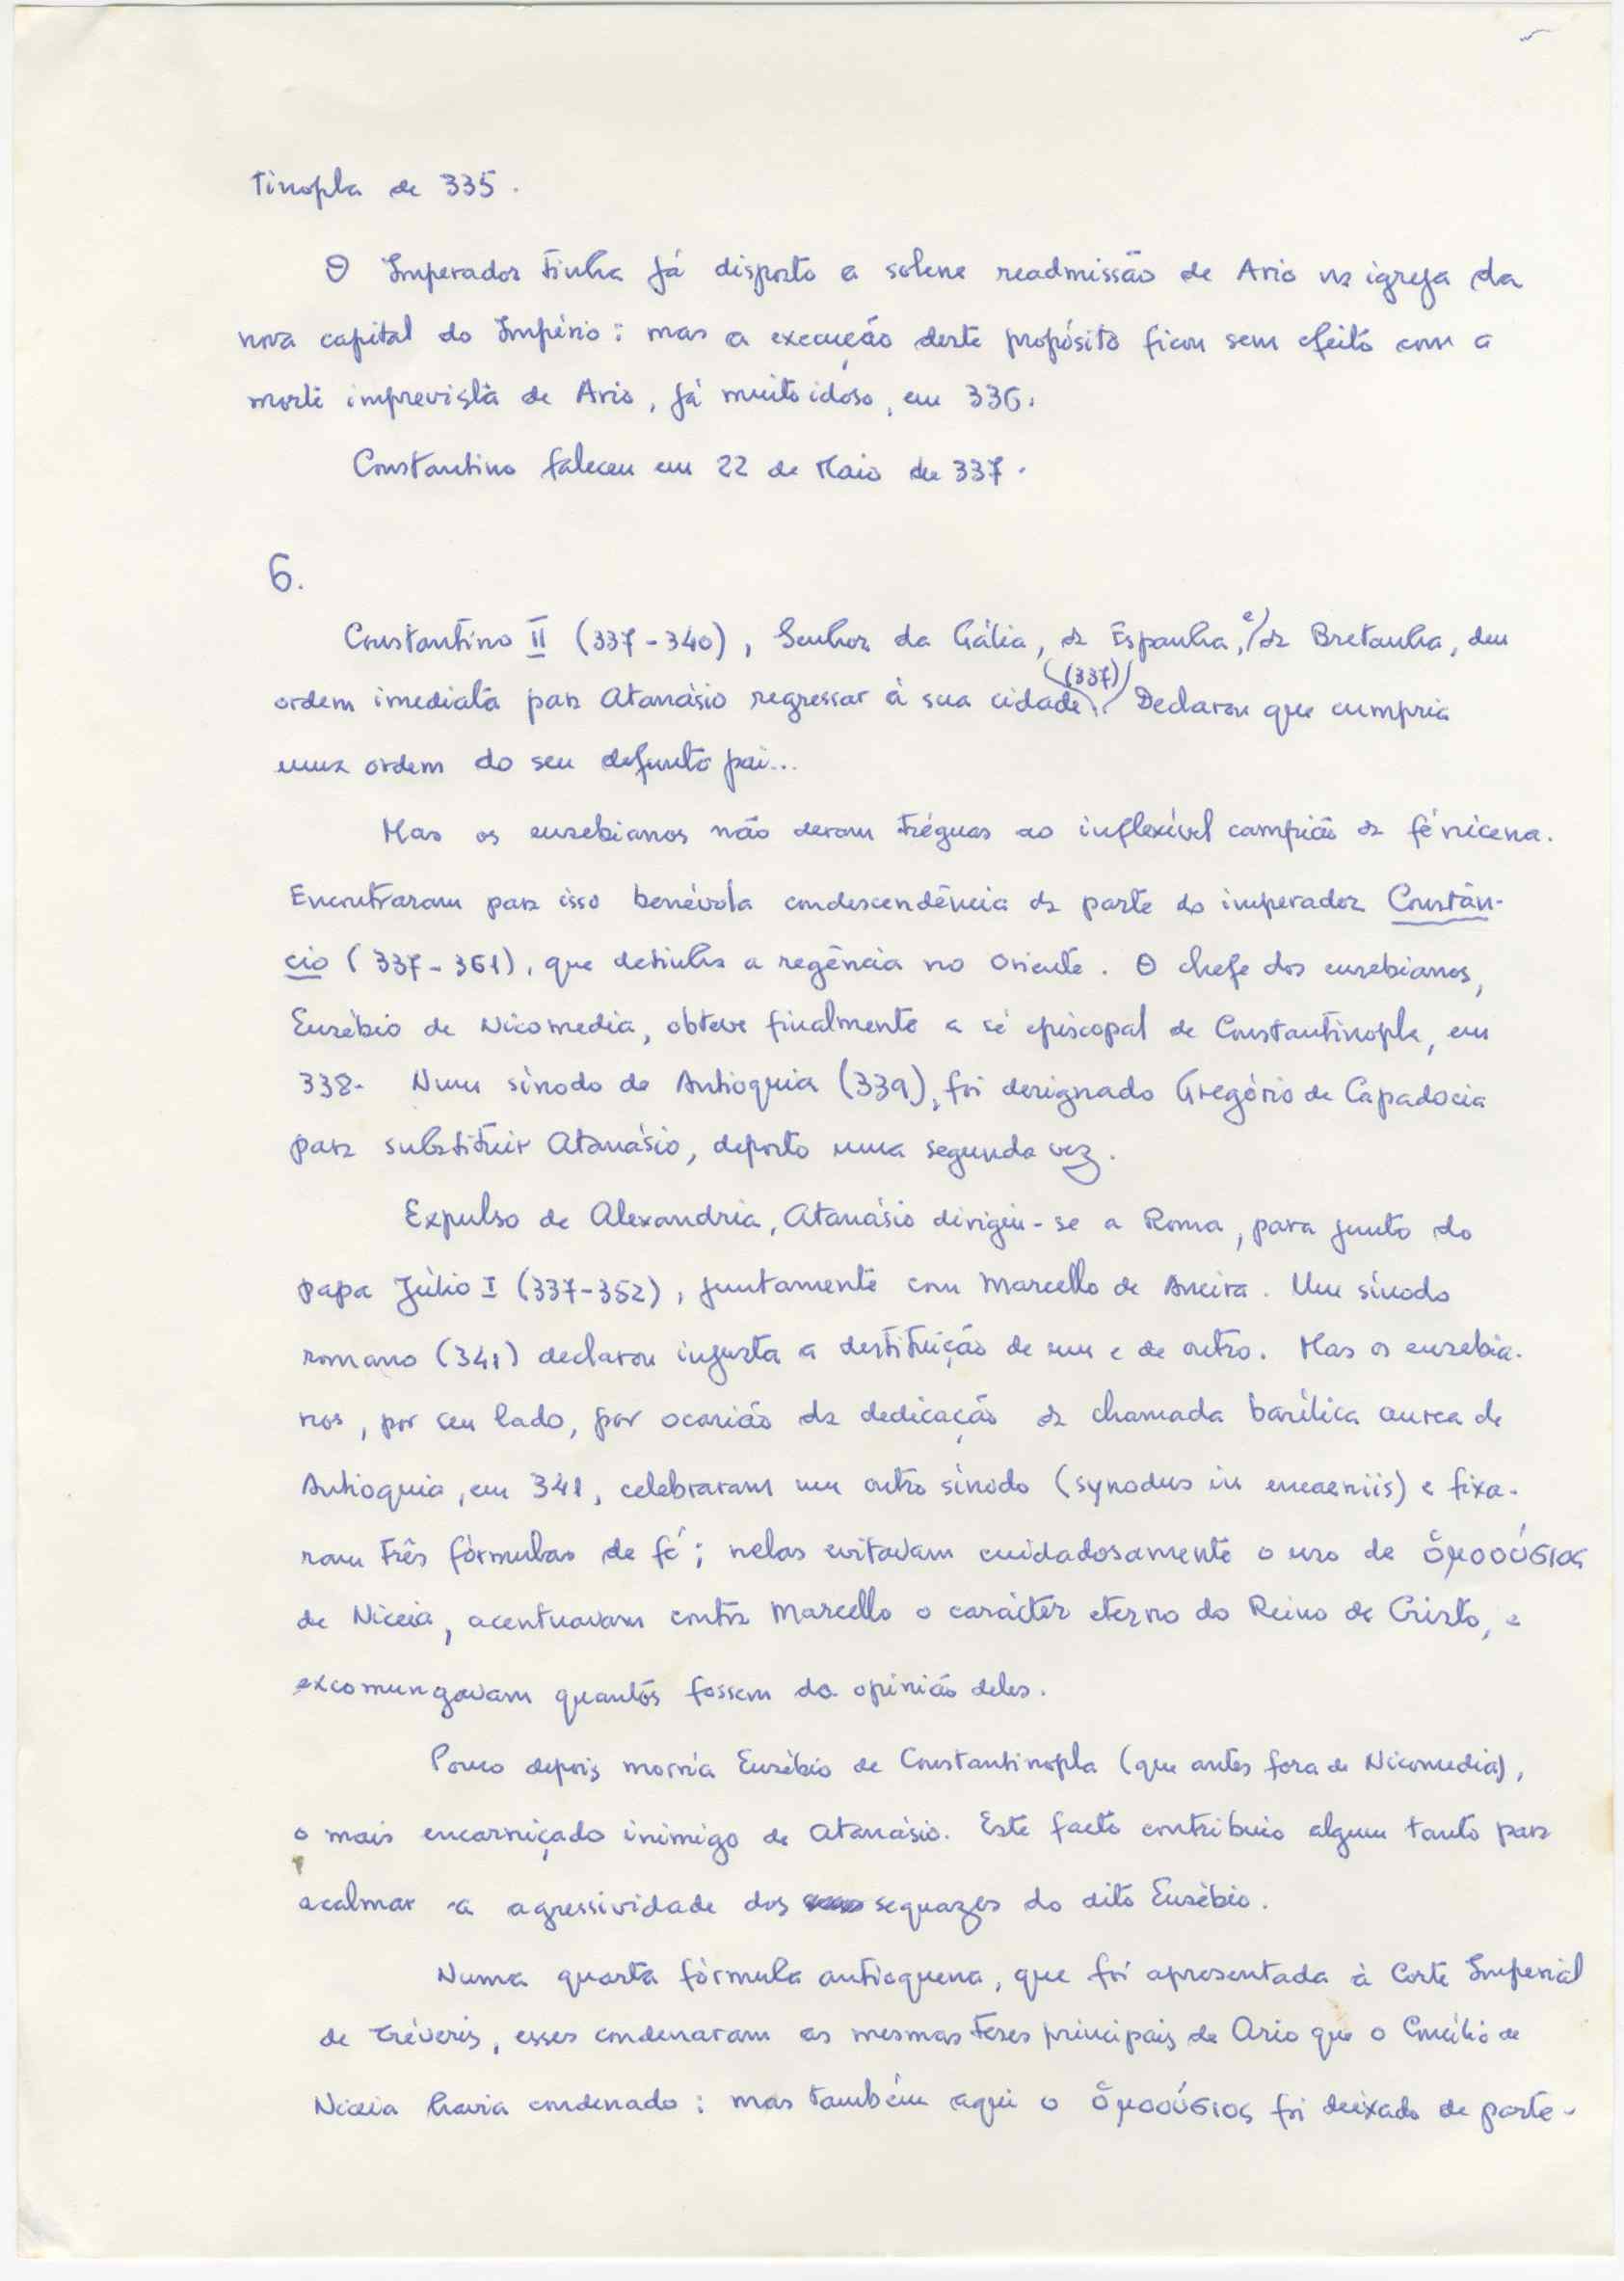 tinopla de 335.
O Imperador tinha já disposto a solene readmissão de Ario na igreja da
nova capital do Império: mas a execução deste propósito ficou sem efeito com a
morte imprevista de Ario, já muito idoso, em 336.
Constantino faleceu em 22 de Maio de 337.
6.
Constantino II (337-340), Senhor da Gália, da Espanha, e da Bretanha, deu
ordem imediata para Atanásio regressar à sua cidade (337). Declarou que cumpria
uma ordem do seu defunto pai...
Mas os eusebianos não deram tréguas ao inflexível campião da fé nicena.
Encontraram para isso benévola condescendência da parte do imperador Constân-
cio (337-361), que detinha a regência no Oriente. O chefe dos eusebianos,
Eusébio de Nicomedia, obteve finalmente a sé episcopal de Constantinopla, em
338. Num sínodo de Antioquia (339), foi designado Gregório de Capadocia
para substituir Atanásio, deposto uma segunda vez.
Expulso de Alexandria, Atanásio dirigiu-se a Roma, para junto do
papa Júlio I (337-352), juntamente com Marcello de Ancira. Um sínodo
romano (341) declarou injusta a destituição de um e de outro. Mas os eusebia-
nos, por seu lado, por ocasião da dedicação da chamada basílica aurea de
Antioquia, em 341, celebraram um outro sínodo (synodus in encaeniis) e fixa-
ram três fórmulas de fé; nelas evitavam cuidadosamente o uso de ὅμοούσιος
de Niceia, acentuavam contra Marcello o carácter eterno do Reino de Cristo, e
excomungavam quantos fossem da opinião deles.
Pouco depois morria Eusébio de Constantinopla (que antes fora de Nicomedia),
o mais encarniçado inimigo de Atanásio. Este facto contribuio algum tanto para
acalmar a agressividade dos sequazes do dito Eusébio.
Numa quarta fórmula antioquena, que foi apresentada à Corte Imperial
de Tréveris, esses condenaram as mesmas teses principais de Ario que o Concílio de
Niceia havia condenado: mas também aqui o ὅμοούσιος foi deixado de parte.